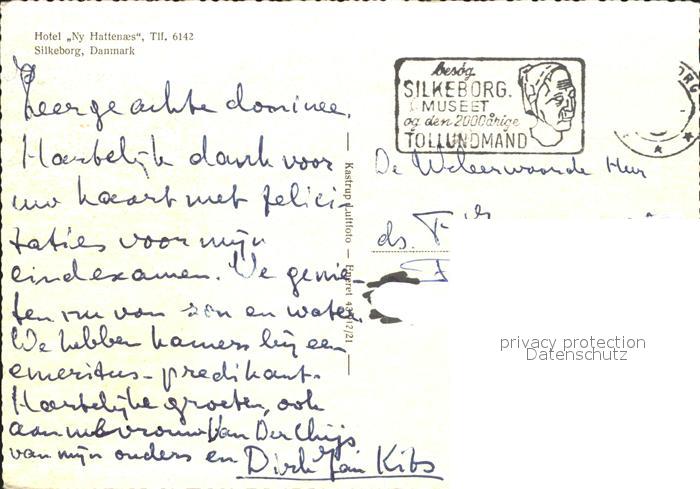 Hotel „Ny Hattenæs“, Tlf. 6142
Silkeborg, Danmark
Zeergeachte dominee,
Hartelijk dank voor
uw kaart met felici-
taties voor mijn
eindexamen. We genie-
ten nu van zon en water.
We hebben kamers bij een
emeritus-predikant.
Hartelijke groeten, ook
aan mevrouw Van Der Chijs
van mijn ouders en Dirk Jan Kibs
Kastrup Luftfoto — Eneret
besøg
SILKEBORG.
MUSEET
og den 2000årige
TOLLUNDMAND
De Weleerwaarde Heer
ds. F
privacy protection
Datenschutz